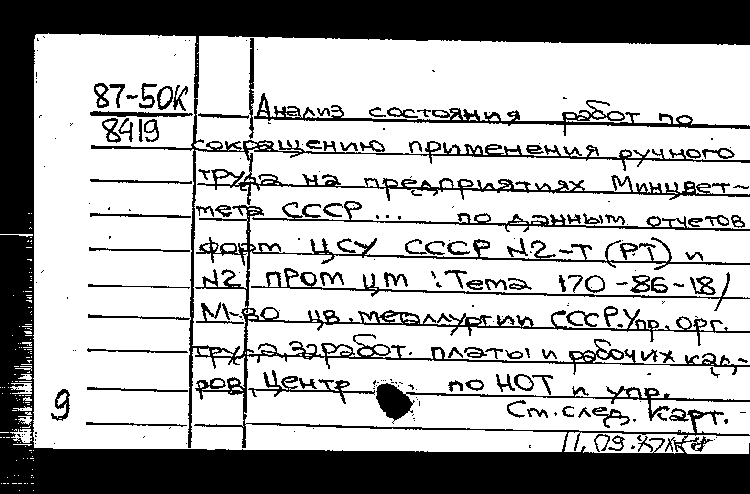 87-50К
8419
Анализ состояния работ по
сокращению применения ручного
труда на предприятиях Минцвет-
мета СССР... по данным отчетов
форм ЦСУ СССР N2-Т (РТ) и
N2 ПРОМ ЦМ : Тема 170-86-18/
М-во цв. металлургии СССР. Упр. орг.
труда, заработ. платы и рабочих кад-
ров, Центр по НОТ и упр.
9
См. след. карт.
11.09.87